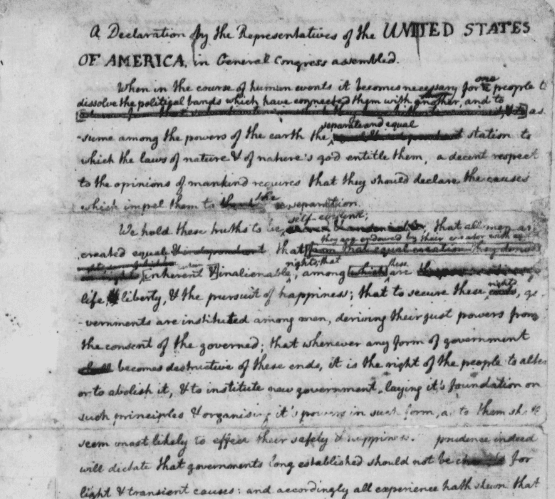 A Declaration by the Representatives of the UNITED STATES
OF AMERICA, in General Congress assembled.
When in the course of human events it becomes necessary for one people to
dissolve the political bands which have connected them with another, and to
as-
separate and equal
sume among the powers of the earth the station to
which the laws of nature & of nature's god entitle them, a decent respect
to the opinions of mankind requires that they should declare the causes
which impel them to the separation.
self-evident;
We hold these truths to be that all men are
they are endowed by their creator with
created equal & independent that from that equal creation they derive
rights; that
inherent & inalienable, among which these are
rights
life & liberty, & the pursuit of happiness; that to secure these ends, go-
vernments are instituted among men, deriving their just powers from
the consent of the governed; that whenever any form of government
shall becomes destructive of these ends, it is the right of the people to alter
or to abolish it, & to institute new government, laying it's foundation on
such principles & organising it's powers in such form, as to them shall
seem most likely to effect their safety & happiness. prudence indeed
will dictate that governments long established should not be changed for
light & transient causes: and accordingly all experience hath shewn that